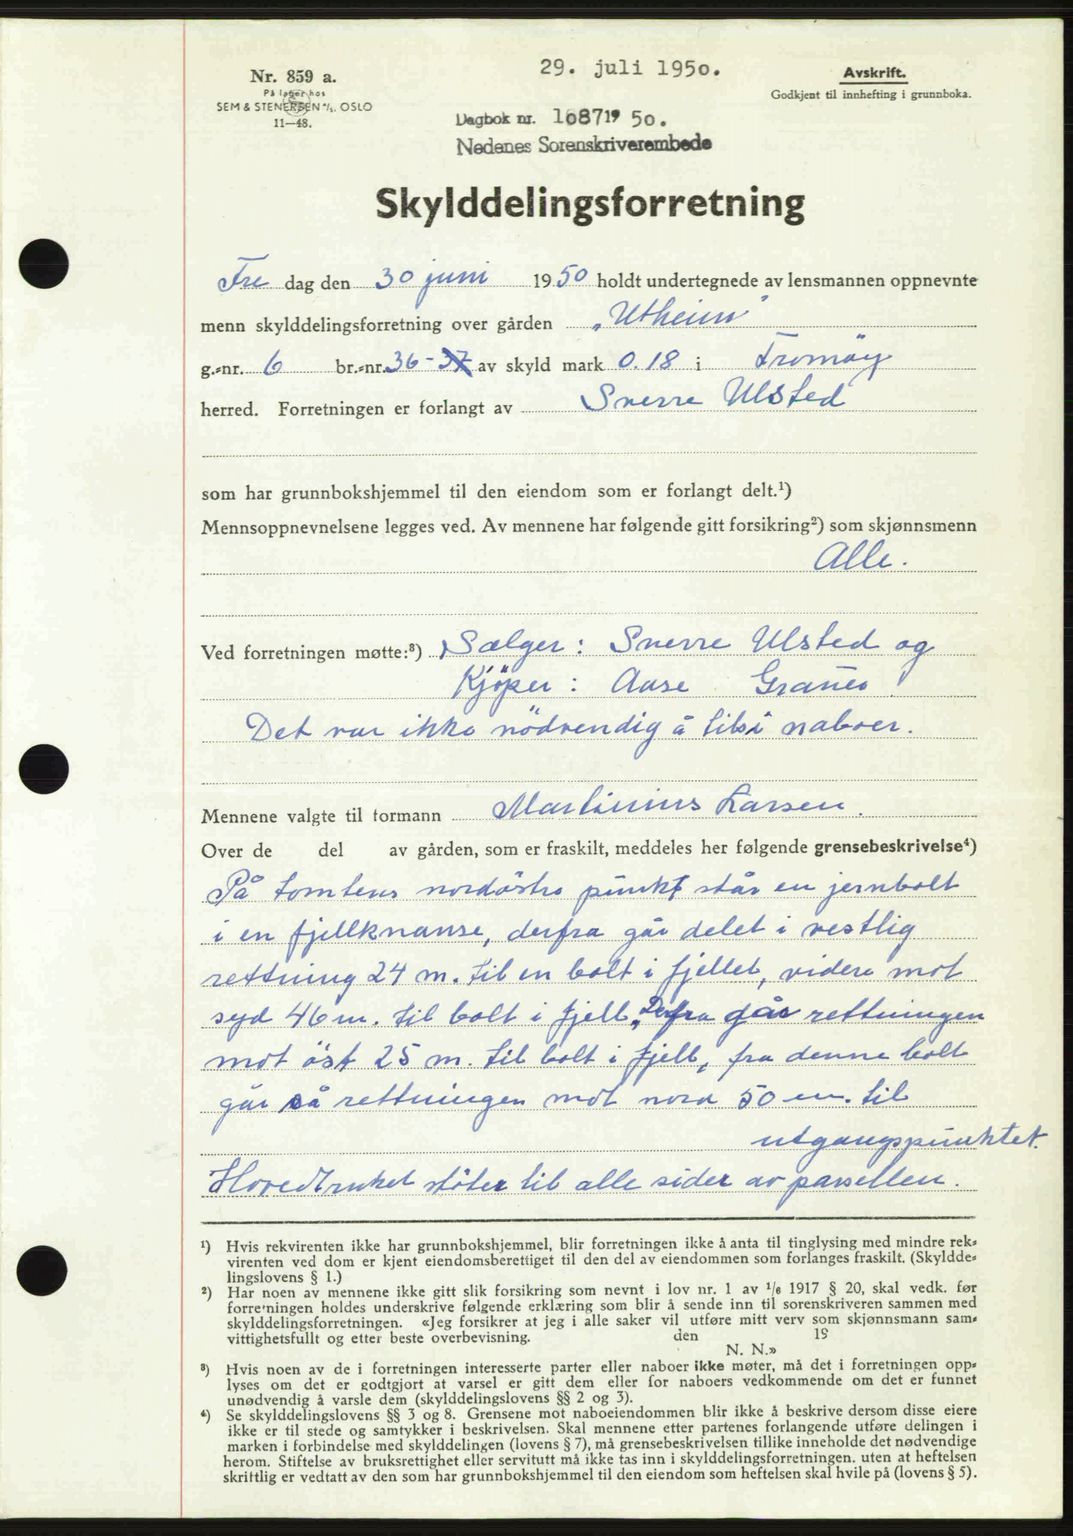 29. juli 1950.
Nr. 859 a.
På lager hos
SEM & STENERSEN A/S. OSLO
11—48.
Avskrift.
Godkjent til innhefting i grunnboka.
Dagbok nr. 1087 19 50.
Nedenes Sorenskriverembede
Skylddelingsforretning
Fre dag den 30 juni 1950 holdt undertegnede av lensmannen oppnevnte
menn skylddelingsforretning over gården „Utheim"
g.-nr. 6 br.-nr. 36-37 av skyld mark 0.18 i Tromöy
herred. Forretningen er forlangt av Sverre Ulsted
som har grunnbokshjemmel til den eiendom som er forlangt delt.¹)
Mennsoppnevnelsene legges ved. Av mennene har følgende gitt forsikring²) som skjønnsmenn
Alle.
Ved forretningen møtte:³) Sælger: Sverre Ulsted og
Kjöper: Aase
Det var ikke nödvendig å tilsi naboer.
Mennene valgte til formann Martinius Larsen.
Over de del av gården, som er fraskilt, meddeles her følgende grensebeskrivelse⁴)
På tomtens nordöstre punkt står en jernbolt
i en fjellknause, derfra går delet i vestlig
rettning 24 m. til en bolt i fjellet, videre mot
syd 46 m. til bolt i fjell. Derfra går rettningen
mot öst 25 m. til bolt i fjell, fra denne bolt
går så rettningen mot nord 50 m. til
utgangspunktet.
Hovedbruket stöter til alle sider av parsellen.
¹) Hvis rekvirenten ikke har grunnbokshjemmel, blir forretningen ikke å anta til tinglysing med mindre rek-
virenten ved dom er kjent eiendomsberettiget til den del av eiendommen som forlanges fraskilt. (Skyldde-
lingslovens § 1.)
²) Har noen av mennene ikke gitt slik forsikring som nevnt i lov nr. 1 av 1/6 1917 § 20, skal vedk. før
forretningen holdes underskrive følgende erklæring som blir å sende inn til sorenskriveren sammen med
skylddelingsforretningen. «Jeg forsikrer at jeg i alle saker vil utføre mitt verv som skjønnsmann sam-
vittighetsfullt og etter beste overbevisning. den 19
N. N.»
³) Hvis noen av de i forretningen interesserte parter eller naboer ikke møter, må det i forretningen opp-
lyses om det er godtgjort at varsel er gitt dem eller for naboers vedkommende om det er funnet
unødvendig å varsle dem (skylddelingslovens §§ 2 og 3).
⁴) Se skylddelingslovens §§ 3 og 8. Grensene mot naboeiendommen blir ikke å beskrive dersom disse eiere
ikke er til stede og samtykker i beskrivelsen. Skal mennene etter partenes forlangende utføre delingen i
marken i forbindelse med skylddelingen (lovens § 7), må grensebeskrivelsen tillike inneholde det nødvendige
herom. Stiftelse av bruksrettighet eller servitutt må ikke tas inn i skylddelingsforretningen, uten at heftelsen
skriftlig er vedtatt av den som har grunnbokshjemmel til den eiendom som heftelsen skal hvile på (lovens § 5).